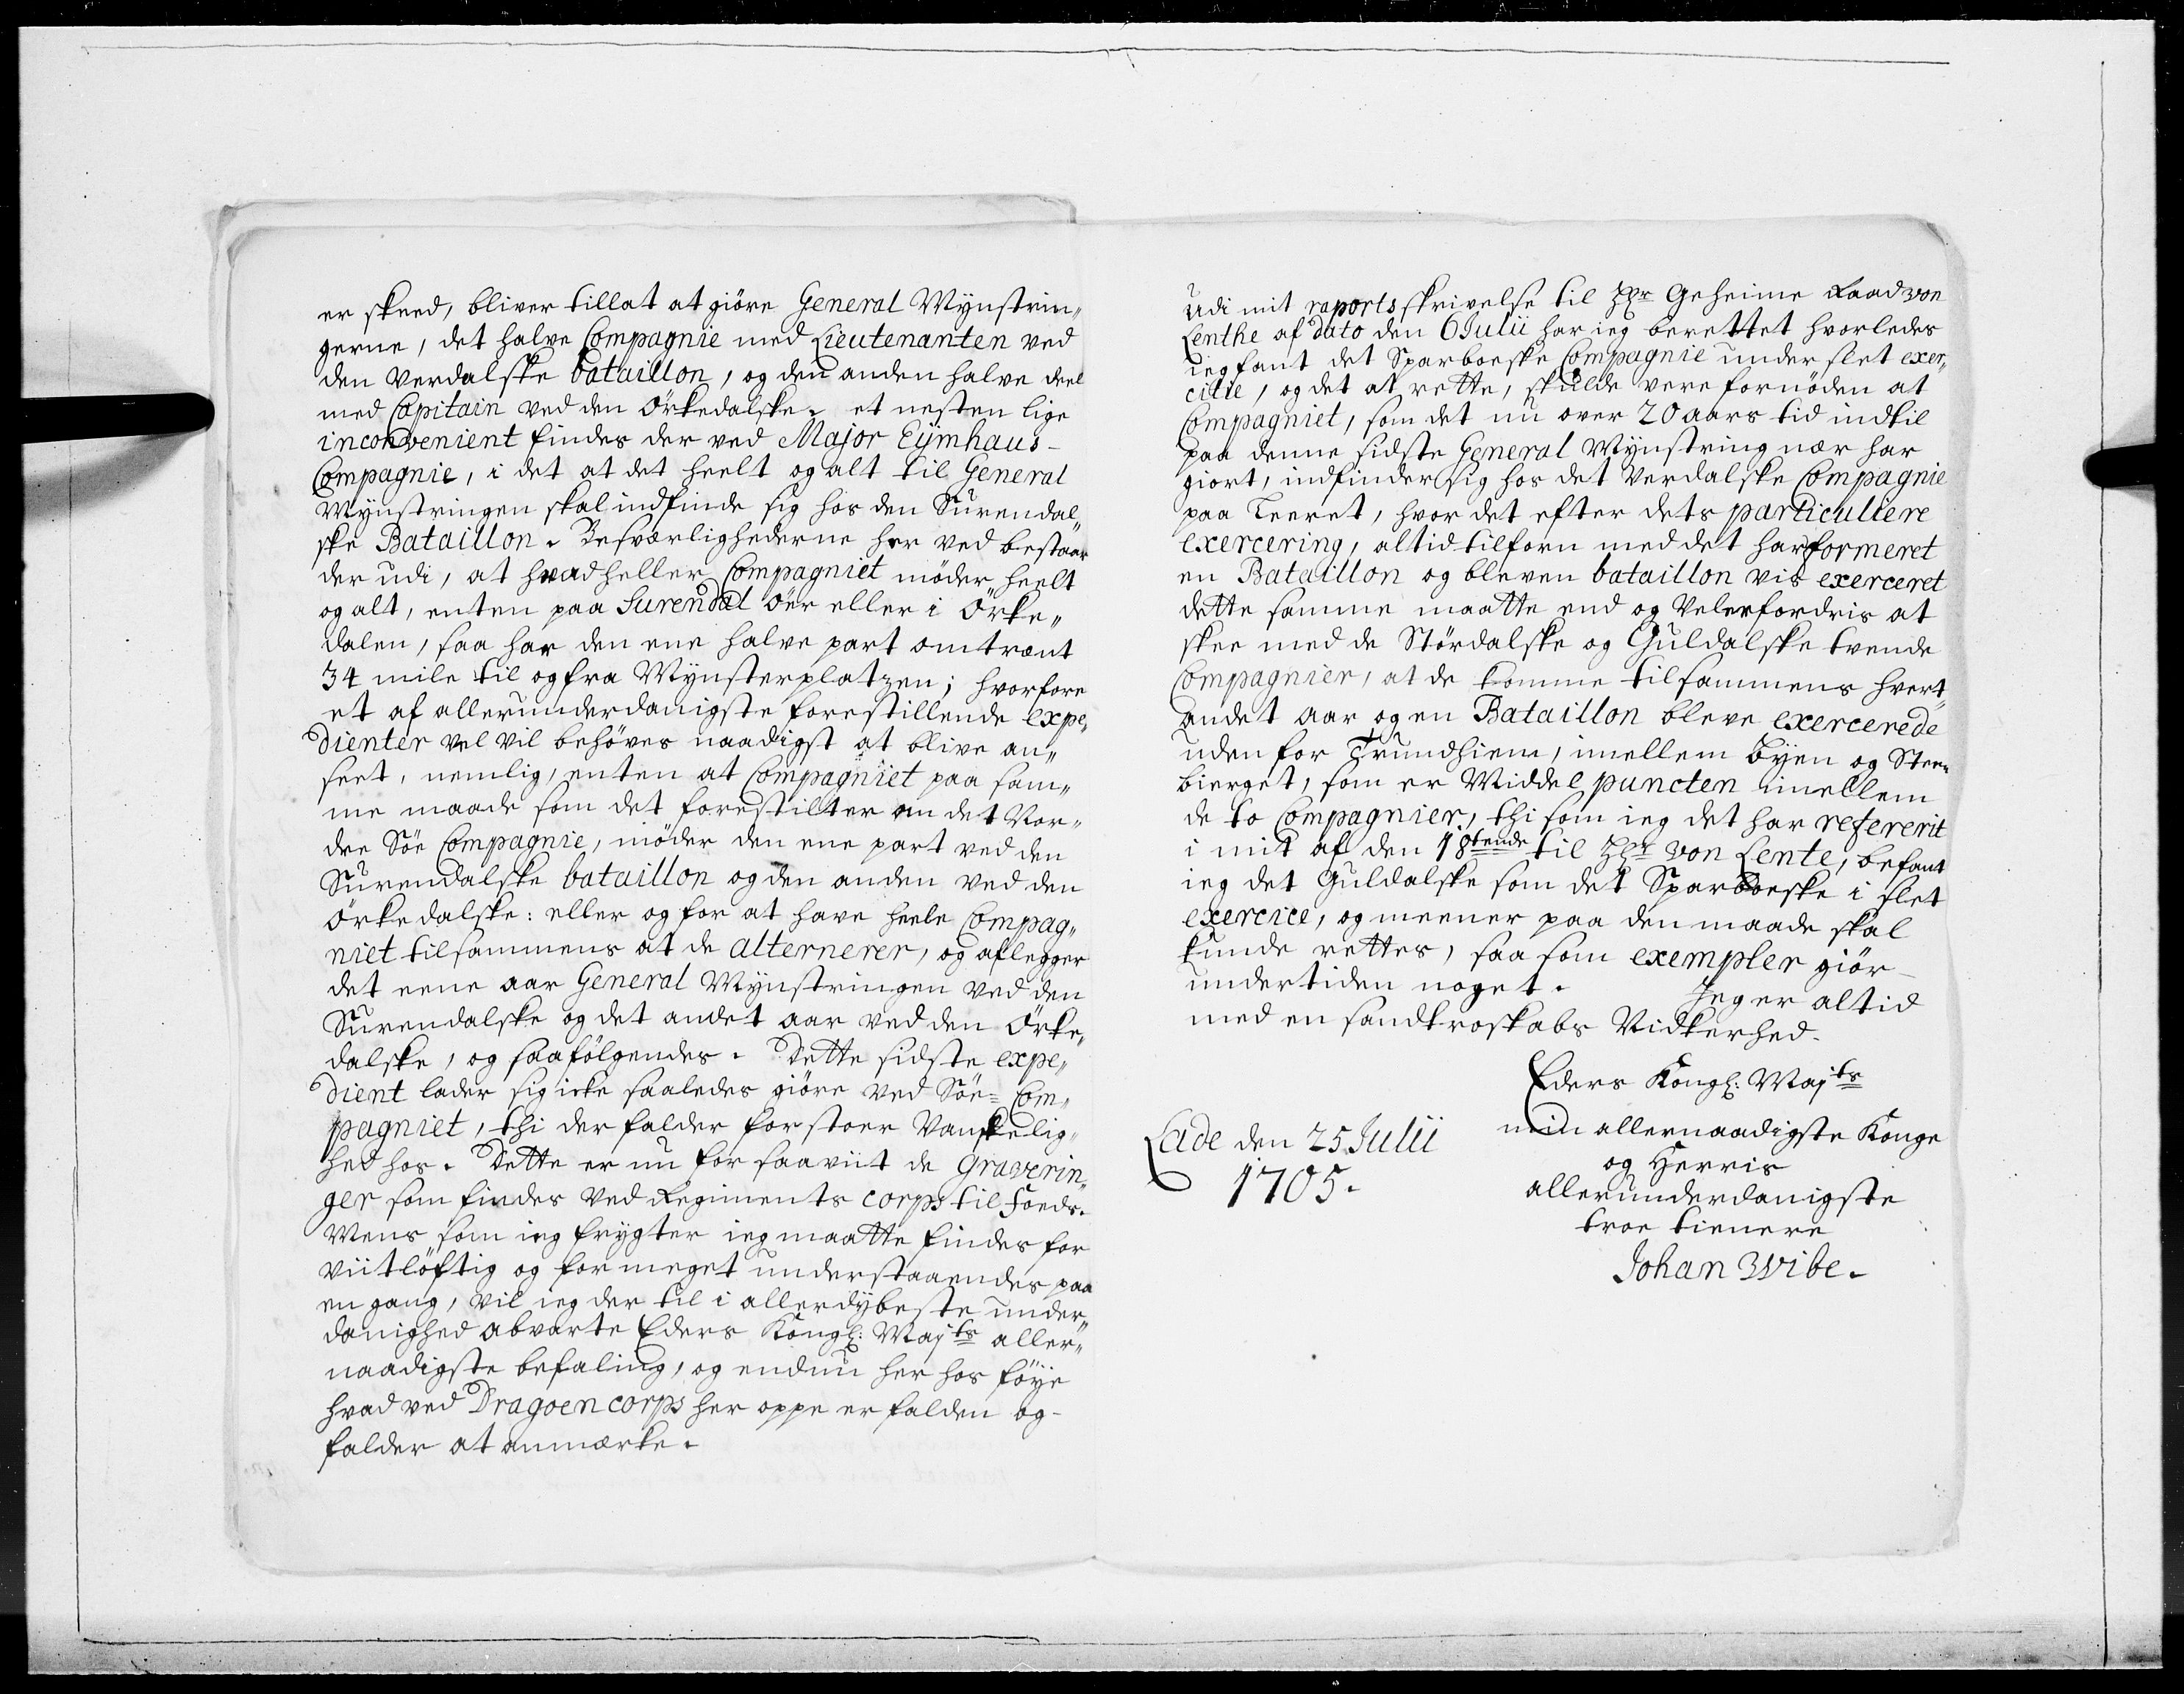 er skeed, bliver tillat at giöre General Mynstrin„
gerne, det halve Compagnie med Lieutenanten ved
den Verdalske bataillon, og den anden halve deel
med Capitain ved den Örkedalske. et nesten lige
inconvenient findes der ved Major Eÿmhaus-
Compagnie, i det at det heelt og alt til General
Mynstringen skal indfinde sig hos den Surendal„
ske Bataillon. Besværlighederne her ved bestaar
der udi, at hvad heller Compagniet möder heelt
og alt, enten paa Surendal öer eller i Örke„
dalen, saa har den ene halve part omtrent
34 mile til og fra Mynsterplatzen; hvorfore
et af allerunderdanigste forestillende expe„
dienter vel vil behöves naadigst at blive an„
seet, nemlig, enten at Compagniet paa sam„
me maade som det forestilter om det Nor„
dre Söe Compagnie, möder den ene part ved den
Surendalske bataillon og den anden ved den
Örkedalske: eller og for at have heele Compag„
niet tilsammens at de alternerer, og aflegger
det eene aar General Mynstringen ved den
Surendalske og det andet aar ved den Örke„
dalske, og saafölgendes. Dette sidste expe„
dient lader sig icke saaledes giöre ved Söe= Com„
pagniet, thi der falder for stoer Vanskelig„
hed hos. Dette er nu for saaviit de Graverin„
ger som findes ved Regiments corps til Foeds.
Mens som ieg frygter ieg maatte findes for
viitlöftig og for meget understaaendes paa
en gang, vil ieg der til i allerdÿbeste under„
danighed abvarte Eders Kongl: Majts aller„
naadigste befaling, og endnu her hos föÿe
hvad ved Dragoen corps her oppe er falden og-
falder at anmærke.
Udi mit raportsskrivelse til Hr Geheime Raad von
Lenthe af dato den 6 Julii har ieg berettet hvorledes
ieg fant det Sparboeske Compagnie under slet exer„
citie, og det at rette, skulde vere fornöden at
Compagniet, som det nu over 20 aars tid indtil
paa denne sidste General Mynstring nær har
giort, indfinder sig hos det Verdalske Compagnie
paa Leeret, hvor det efter dets particuliere
exercering, altid tilforn med det har formeret
en Bataillon og bleven bataillon vis exerceret
dette samme maatte end og Vel erfordris at
skee med de Stördalske og Guldalske tvende
Compagnier, at de komme tilsammens hvert„
andet aar og en Bataillon bleve exercerede
uden for Trundhiem, imellem Byen og Steen„
bierget, som er Middel puncten imellem
de to Compagnier, thi som ieg det har refererit
i mit af den 18tende til Hr von Lente, befant
ieg det Guldalske som det Sparboeske i slet
exercice, og meener paa den maade skal
kunde rettes, saa som exempler giör-
undertiden noget. Jeg er altid
med en sandtroskabs Vidkerhed.
Eders Kongl: Majts
min allernaadigste Konge
og Herris
allerunderdanigste
troe tienere
Johan Wibe.
Lade den 25 Julii
1705.